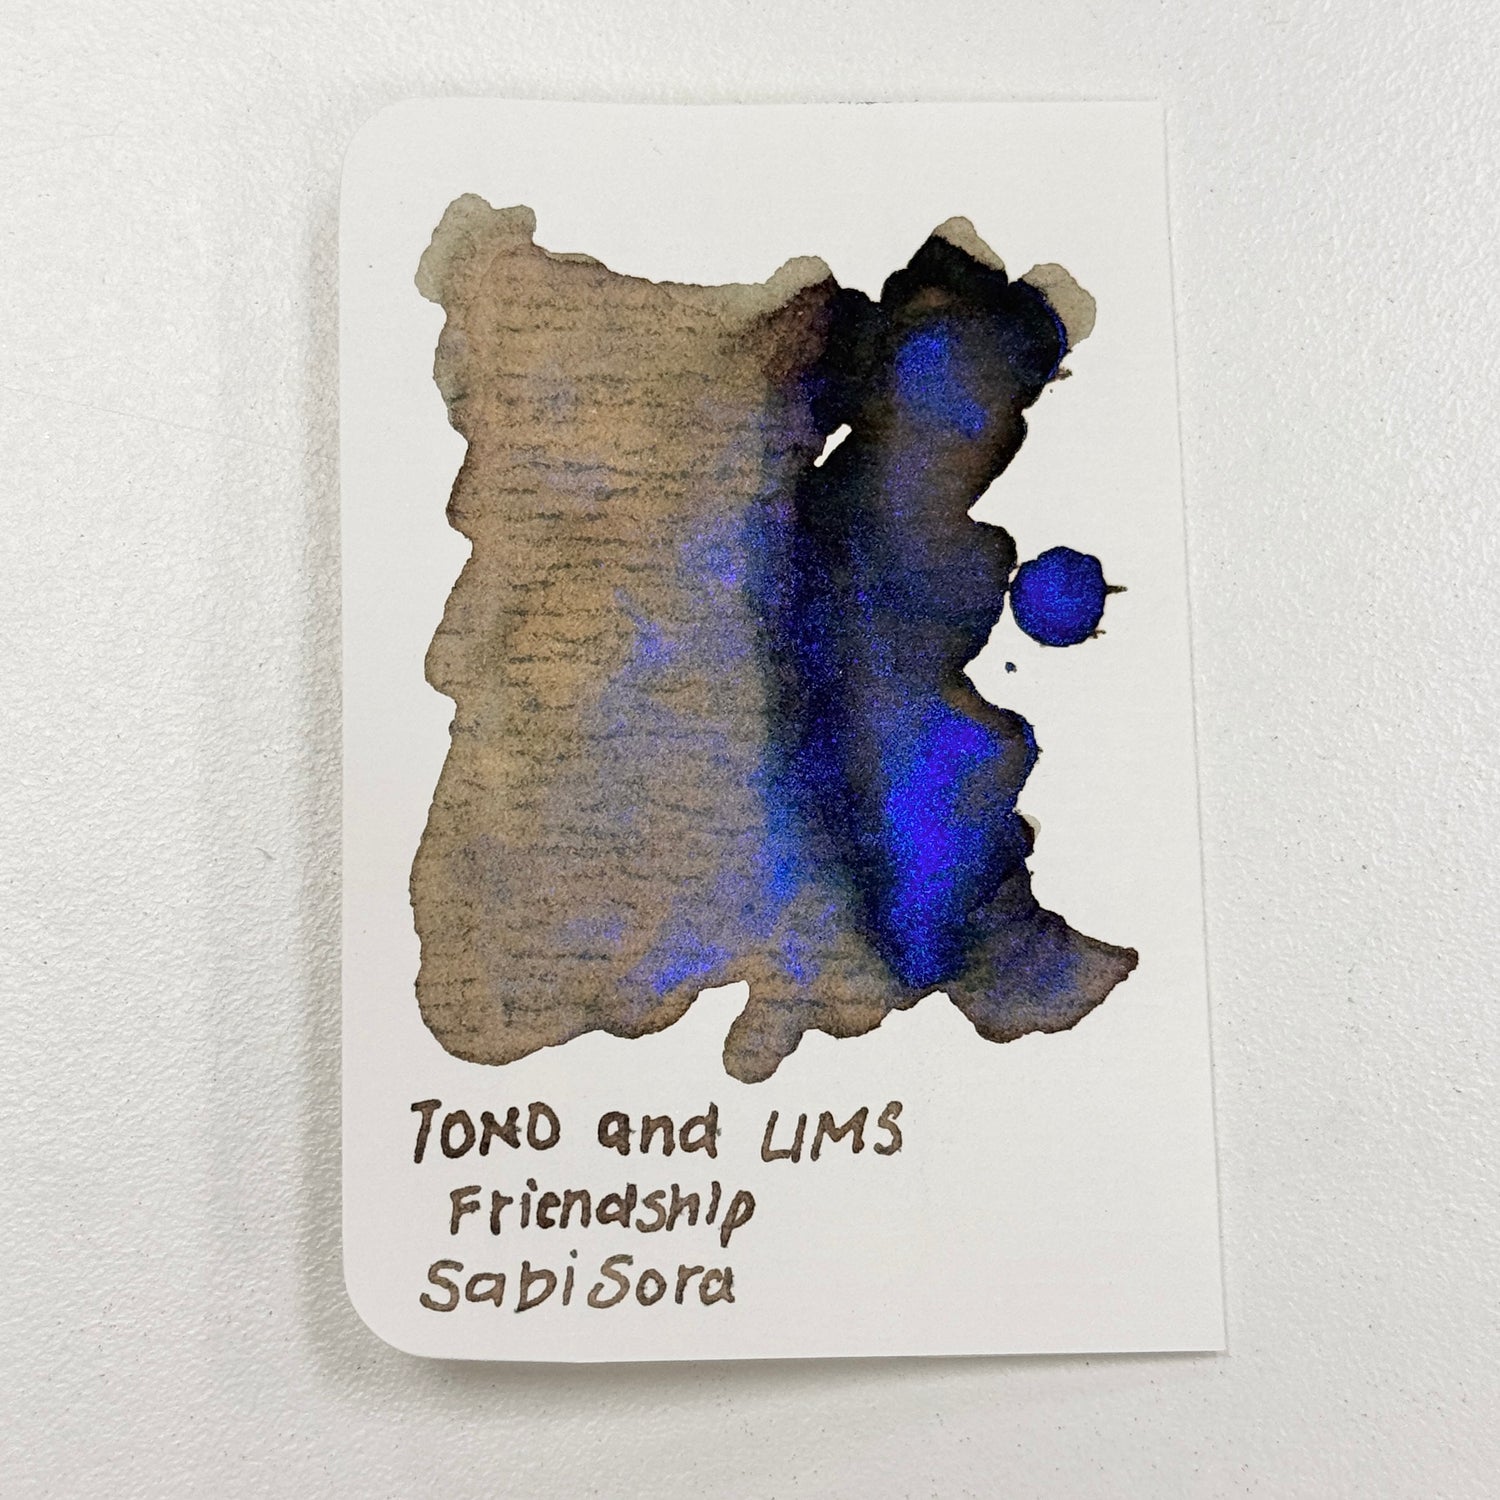 TONO and LIMS
Friendship
Sabi Sora